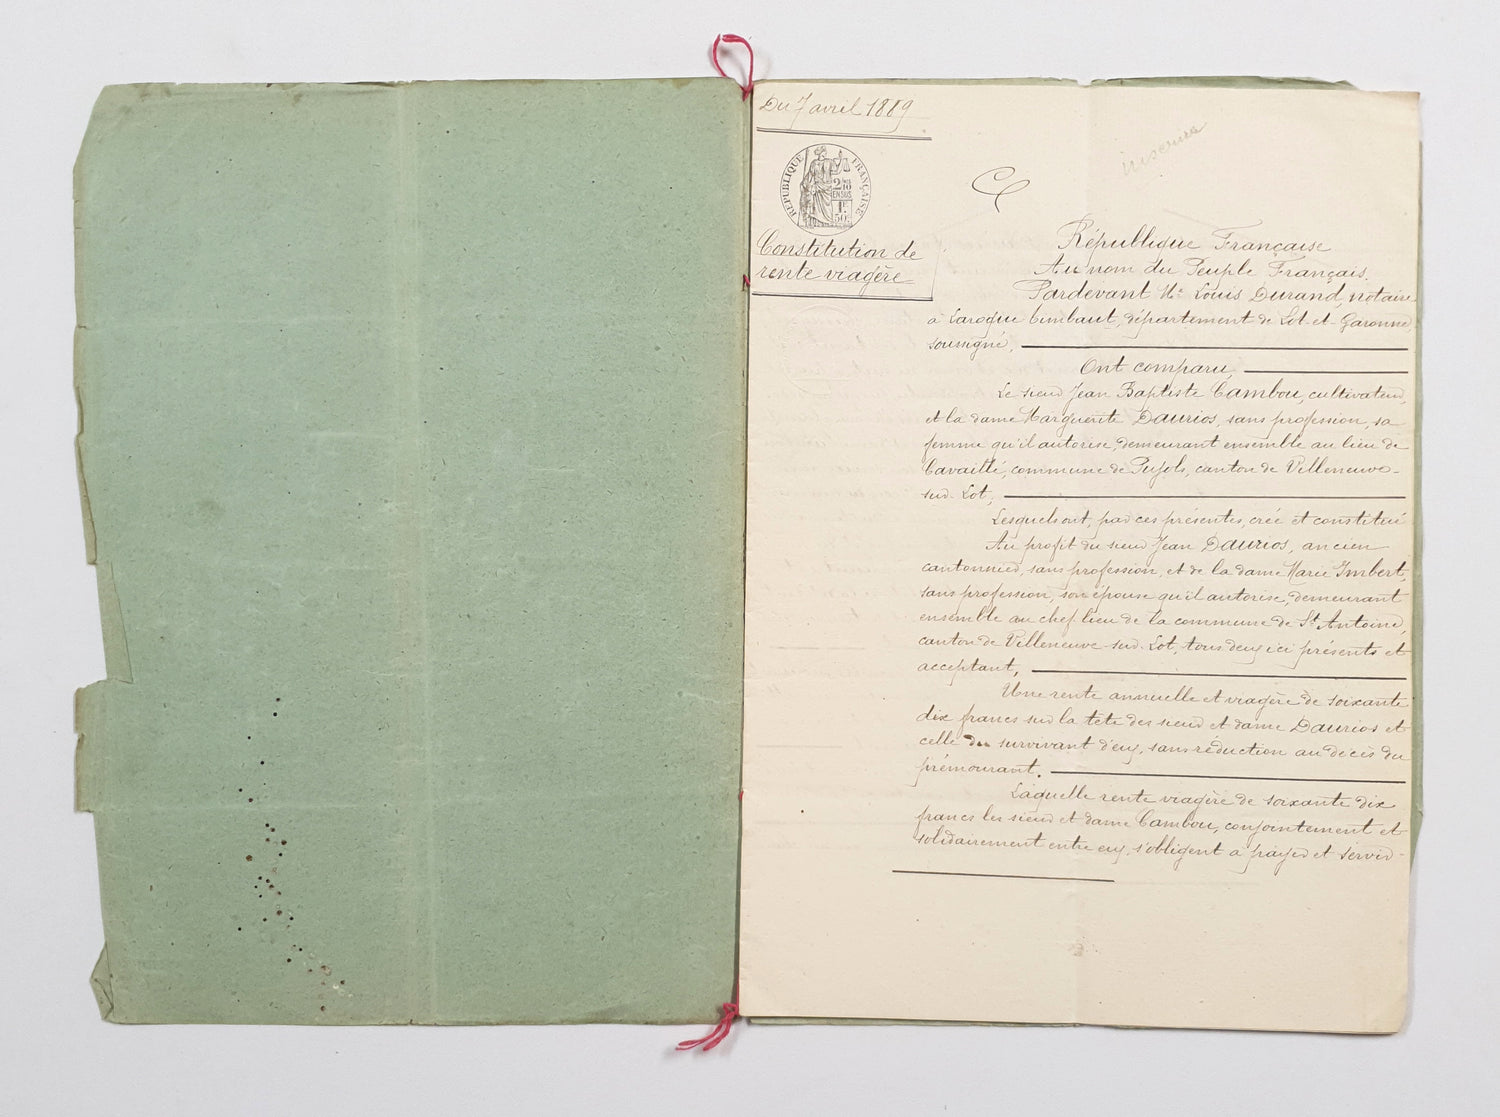 Du 7 avril 1889
RÉPUBLIQUE FRANÇAISE
2/10
EN SUS
1F
50c
Constitution de
rente viagère
inscrire
République Française
Au nom du Peuple Français.
Pardevant Me Louis Durand, notaire
à Laroque Timbaut, département de Lot-et-Garonne,
soussigné,
Ont comparu,
Le sieur Jean Baptiste Cambou, cultivateur,
et la dame Marguerite Daurios, sans profession, sa
femme qu'il autorise, demeurant ensemble au lieu de
Cavaillé, commune de Pujols, canton de Villeneuve-
sur-Lot,
Lesquels ont, par ces présentes, créé et constitué
Au profit du sieur Jean Daurios, ancien
cantonnier, sans profession, et de la dame Marie Imbert,
sans profession, son épouse qu'il autorise, demeurant
ensemble au chef lieu de la commune de St Antoine,
canton de Villeneuve-sur-Lot, tous deux ici présents et
acceptant,
Une rente annuelle et viagère de soixante
dix francs sur la tête des sieur et dame Daurios et
celle du survivant d'eux, sans réduction au décès du
prémourant.
Laquelle rente viagère de soixante dix
francs les sieur et dame Cambou, conjointement et
solidairement entre eux, s'obligent à payer et servir